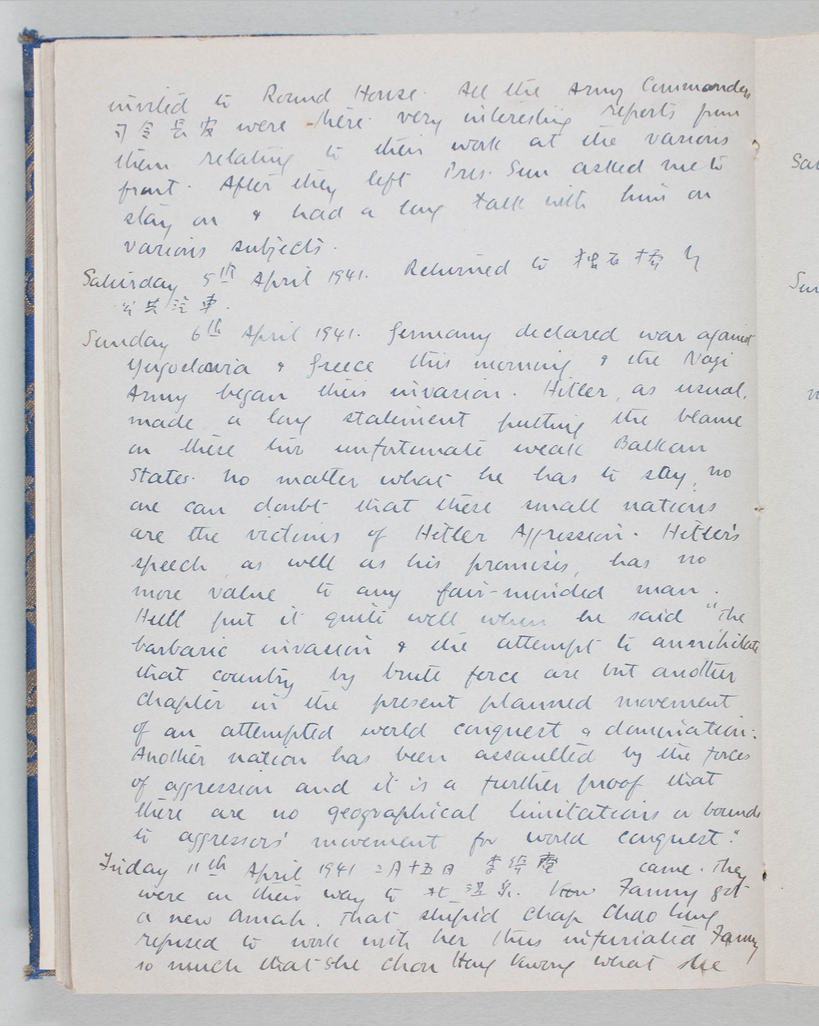 invited to Round House. All the Army Commanders
司令長官 were there. very interesting reports from
them relating to their work at the various
front. After they left Pres. Sun asked me to
stay on & had a long talk with him on
various subjects.
Saturday 5th April 1941. Returned to
公共汽車.
Sunday 6th April 1941. Germany declared war against
Yugoslavia & Greece this morning & the Nazi
Army began their invasion. Hitler, as usual,
made a long statement putting the blame
on these two unfortunate weak Balkan
States. No matter what he has to say, no
one can doubt that these small nations
are the victims of Hitler Aggression. Hitler's
speech, as well as his promises, has no
more value to any fair-minded man.
Hull put it quite well when he said "The
barbaric invasion & the attempt to annihilate
that country by brute force are but another
chapter in the present planned movement
of an attempted world conquest & domination.
Another nation has been assaulted by the forces
of aggression and it is a further proof that
there are no geographical limitations or bounds
to aggressors' movement for world conquest."
Friday 11th April 1941 二月十五日 came. They
were on their way to Fanny got
a new Amah. That stupid chap Chao
refused to work with her thus infuriated Fanny
so much that she what she